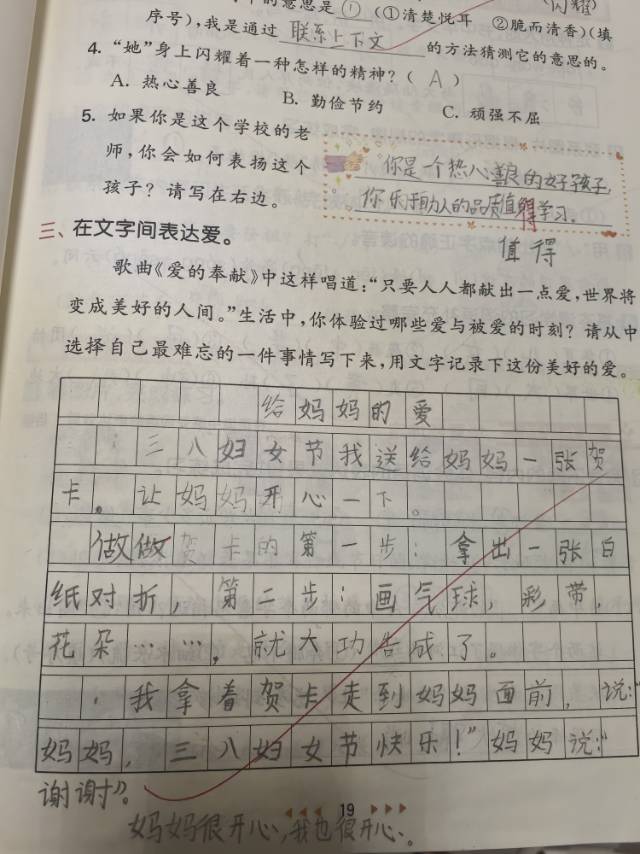 的意思是(①)(①清楚悦耳 ②脆而清香)(填
序号),我是通过 联系上下文 的方法猜测它的意思的。
4.“她”身上闪耀着一种怎样的精神?( A )
A. 热心善良 B. 勤俭节约 C. 顽强不屈
5. 如果你是这个学校的老
师,你会如何表扬这个
孩子?请写在右边。
你是一个热心善良的好孩子,
你乐于助人的品质值得学习。
值得
三、在文字间表达爱。
歌曲《爱的奉献》中这样唱道:“只要人人都献出一点爱,世界将
变成美好的人间。”生活中,你体验过哪些爱与被爱的时刻?请从中
选择自己最难忘的一件事情写下来,用文字记录下这份美好的爱。
给妈妈的爱
三八妇女节我送给妈妈一张贺
卡。让妈妈开心一下。
做做贺卡的第一步:拿出一张白
纸对折,第二步:画气球,彩带,
花朵……,就大功告成了。
我拿着贺卡走到妈妈面前,说:“
妈妈,三八妇女节快乐!”妈妈说:“
谢谢”。
妈妈很开心,我也很开心。
19